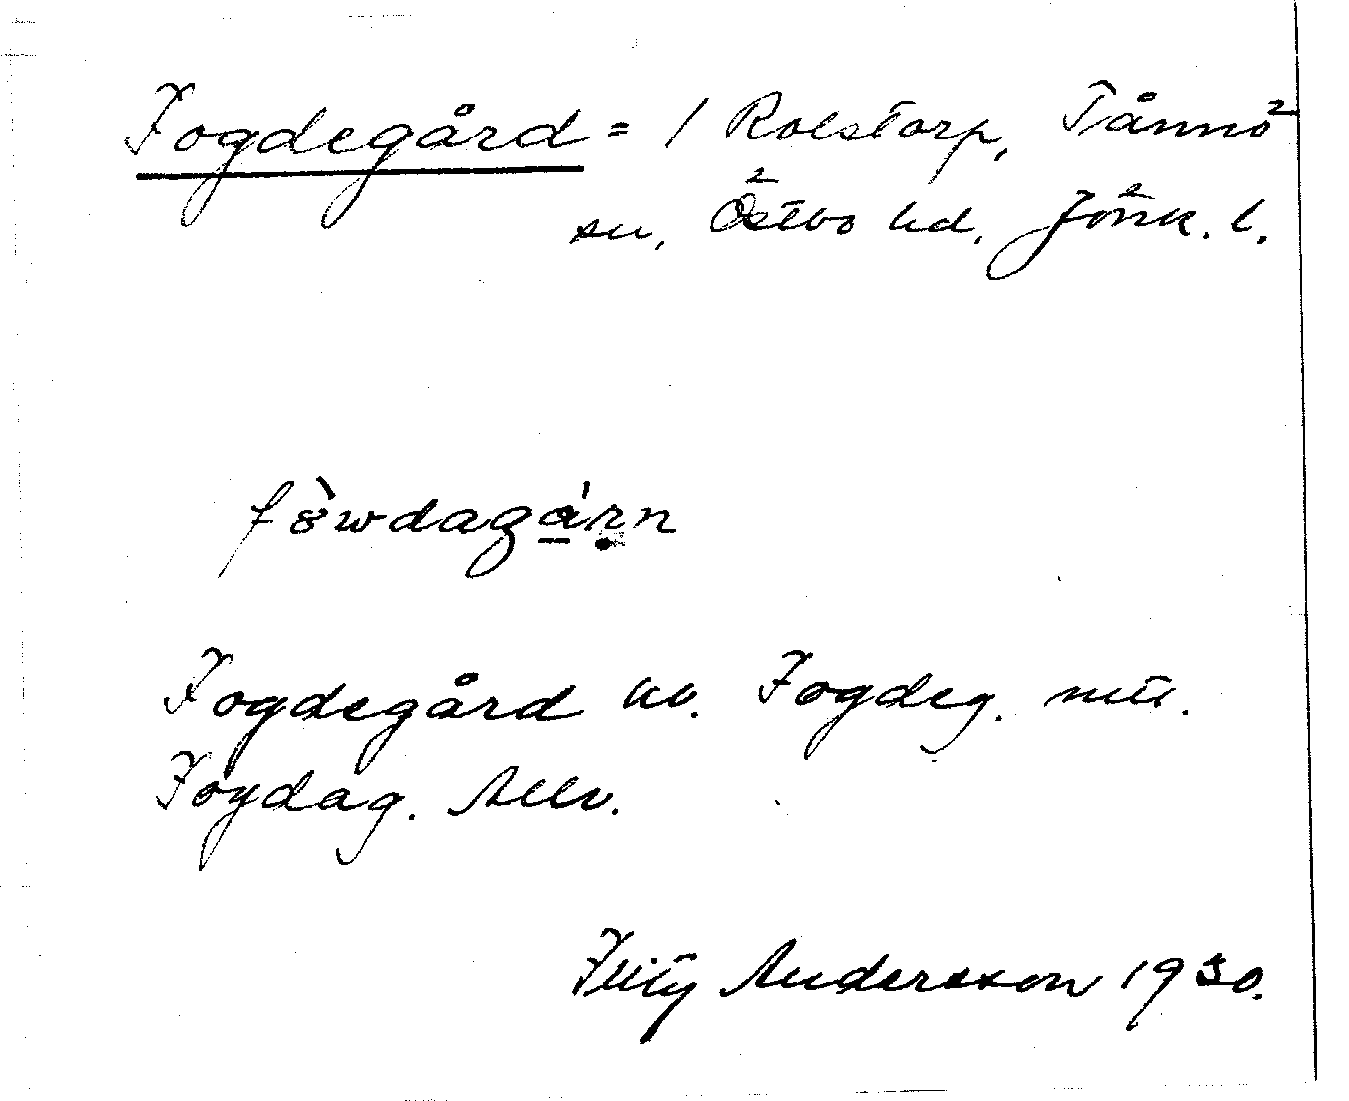 Fogdegård = 1 Rolstorp, Tånnö
sn, Östbo hd, Jönk. l.
fòwdagá̱rn
Fogdegård kb. Fogdeg. mtl.
Foydag. Allv.
Filip Andersson 1930.